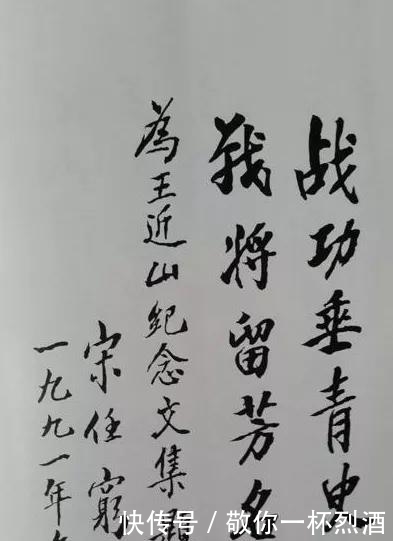 战功垂青史
战将留芳名
为王近山纪念文集题
宋任穷
一九九一年
快传号/敬你一杯烈酒